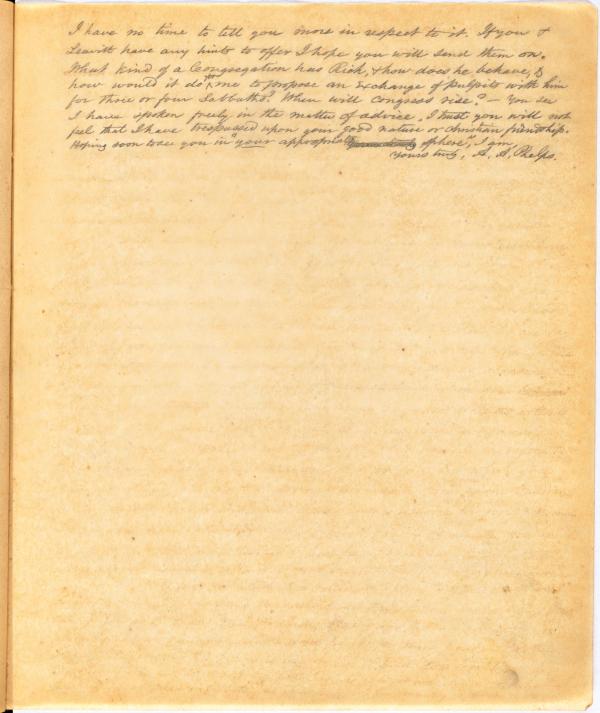 I have no time to tell you more in respect to it. If you &
Leavitt have any hints to offer I hope you will send them on.
What kind of a Congregation has Rich, & how does he behave, &
how would it do for me to propose an exchange of pulpits with him
for three or four Sabbaths? When will Congress rise? — You see
I have spoken freely in the matter of advice. I trust you will not
feel that I have trespassed upon your good nature or Christian friendship.
Hoping soon to see you in "your appropriate sphere", I am,
Yours truly, A. A. Phelps.